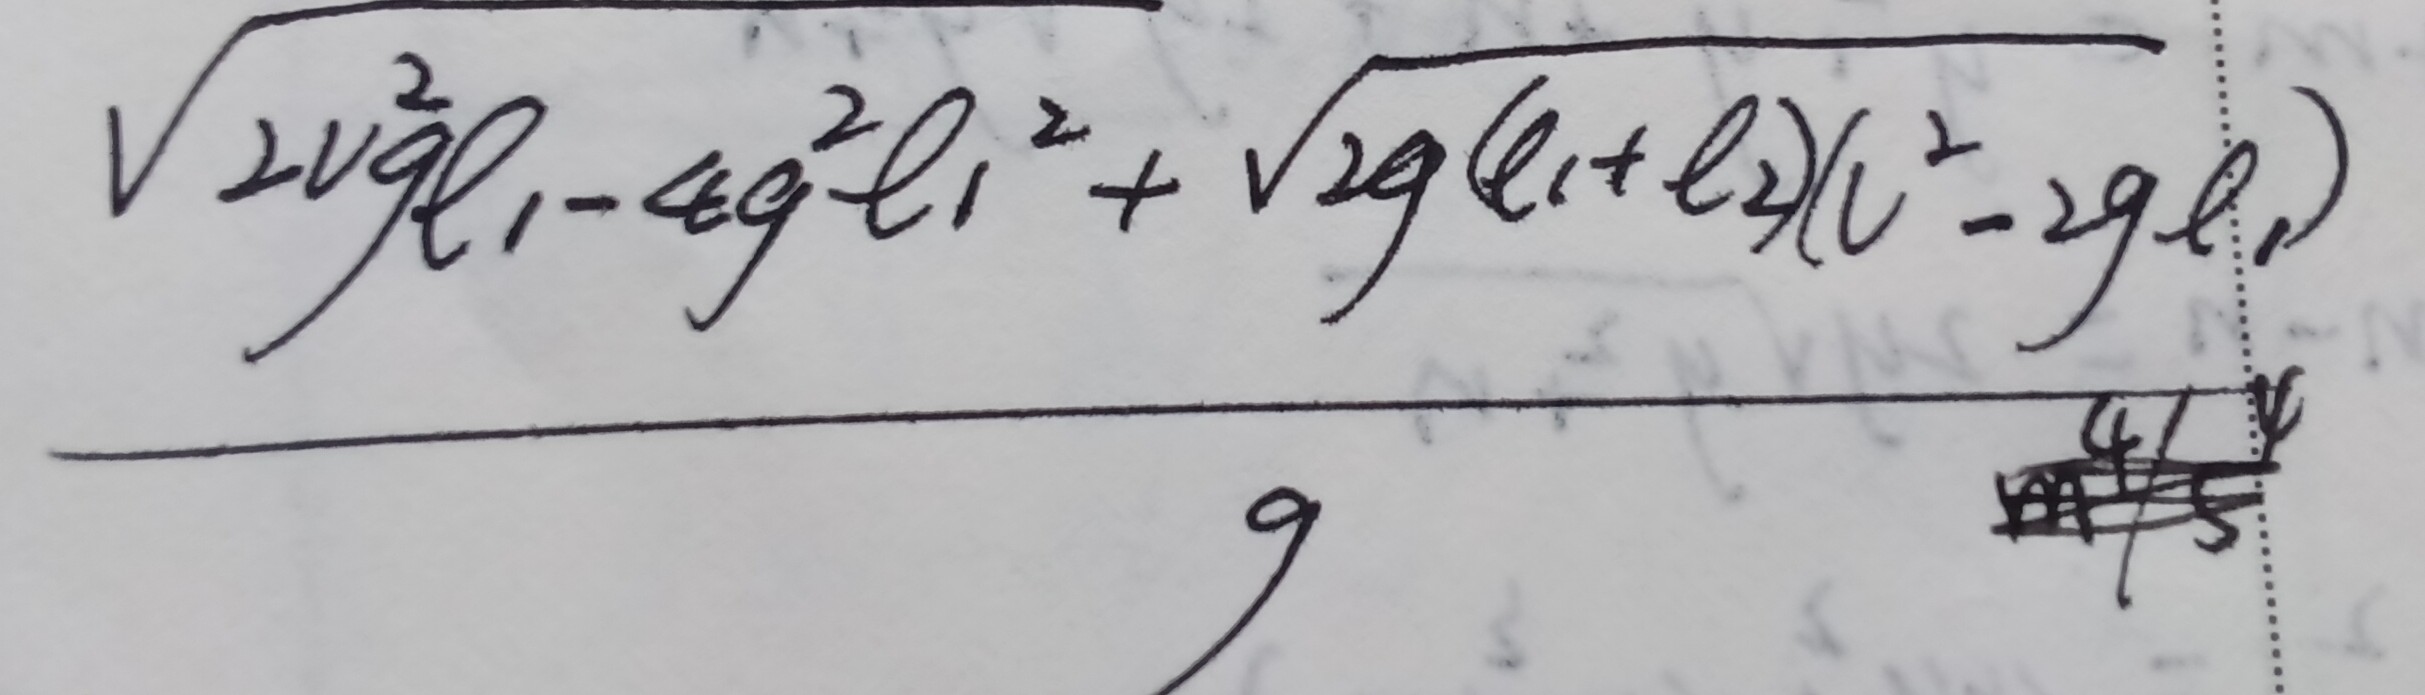 √(2v²gl₁ - 4g²l₁²) + √(2g(l₁+l₂)(v² - 2gl₁))
g